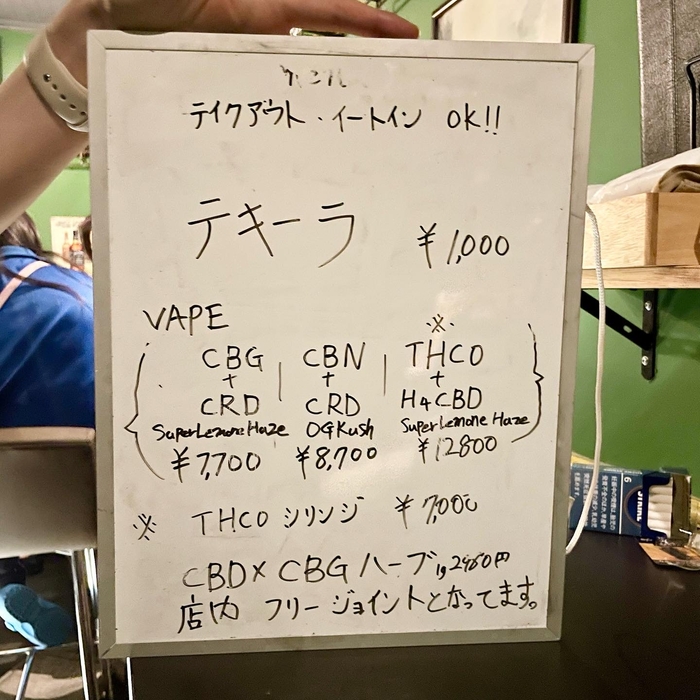 テイクアウト・イートイン OK!!
テキーラ ¥1,000
VAPE
※
CBG | CBN | THCO
+ + +
CRD CRD H4CBD
SuperLemoneHaze OGKush SuperLemoneHaze
¥7,700 ¥8,700 ¥12800
※ THCO シリンジ ¥7,000
CBD×CBG ハーブ 1g 2480円
店内 フリージョイントとなってます。